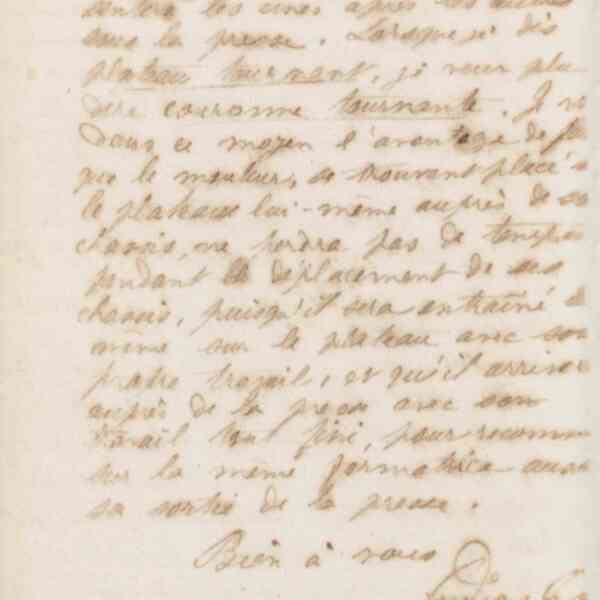 les unes après les autres
sous la presse. Lorsque je dis
plateau tournant, je veux plu
couronne tournante. Je v
dans ce moyen l'avantage de f
que le mouleur, se trouvant placé s
le plateau lui-même auprès de so
chassis, ne perdra pas de temps
pendant le déplacement de ses
chassis, puisqu'il sera entraîné
même sur le plateau avec son
propre travail, et qu'il arrive
auprès de la presse avec son
travail tout fini, pour recomm
sur la même formatrice
sa sortie de la presse.
Bien à vous